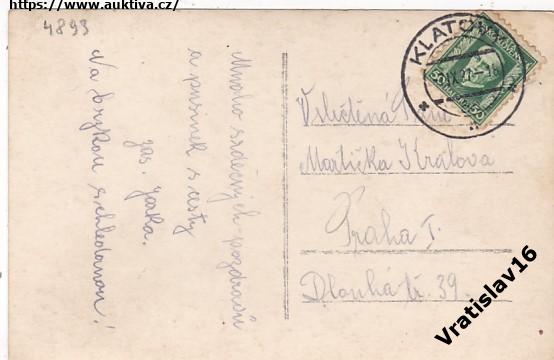 https://www.auktiva.cz/
4893
Mnoho srdečných pozdravů
a pusinek s cesty
zas. Jarka.
Na brzkou schledanou!
KLATOVY
50 50
Vzácná slečna
Martička Králova
Praha I.
Dlouhá tř. 39.
Vratislav16